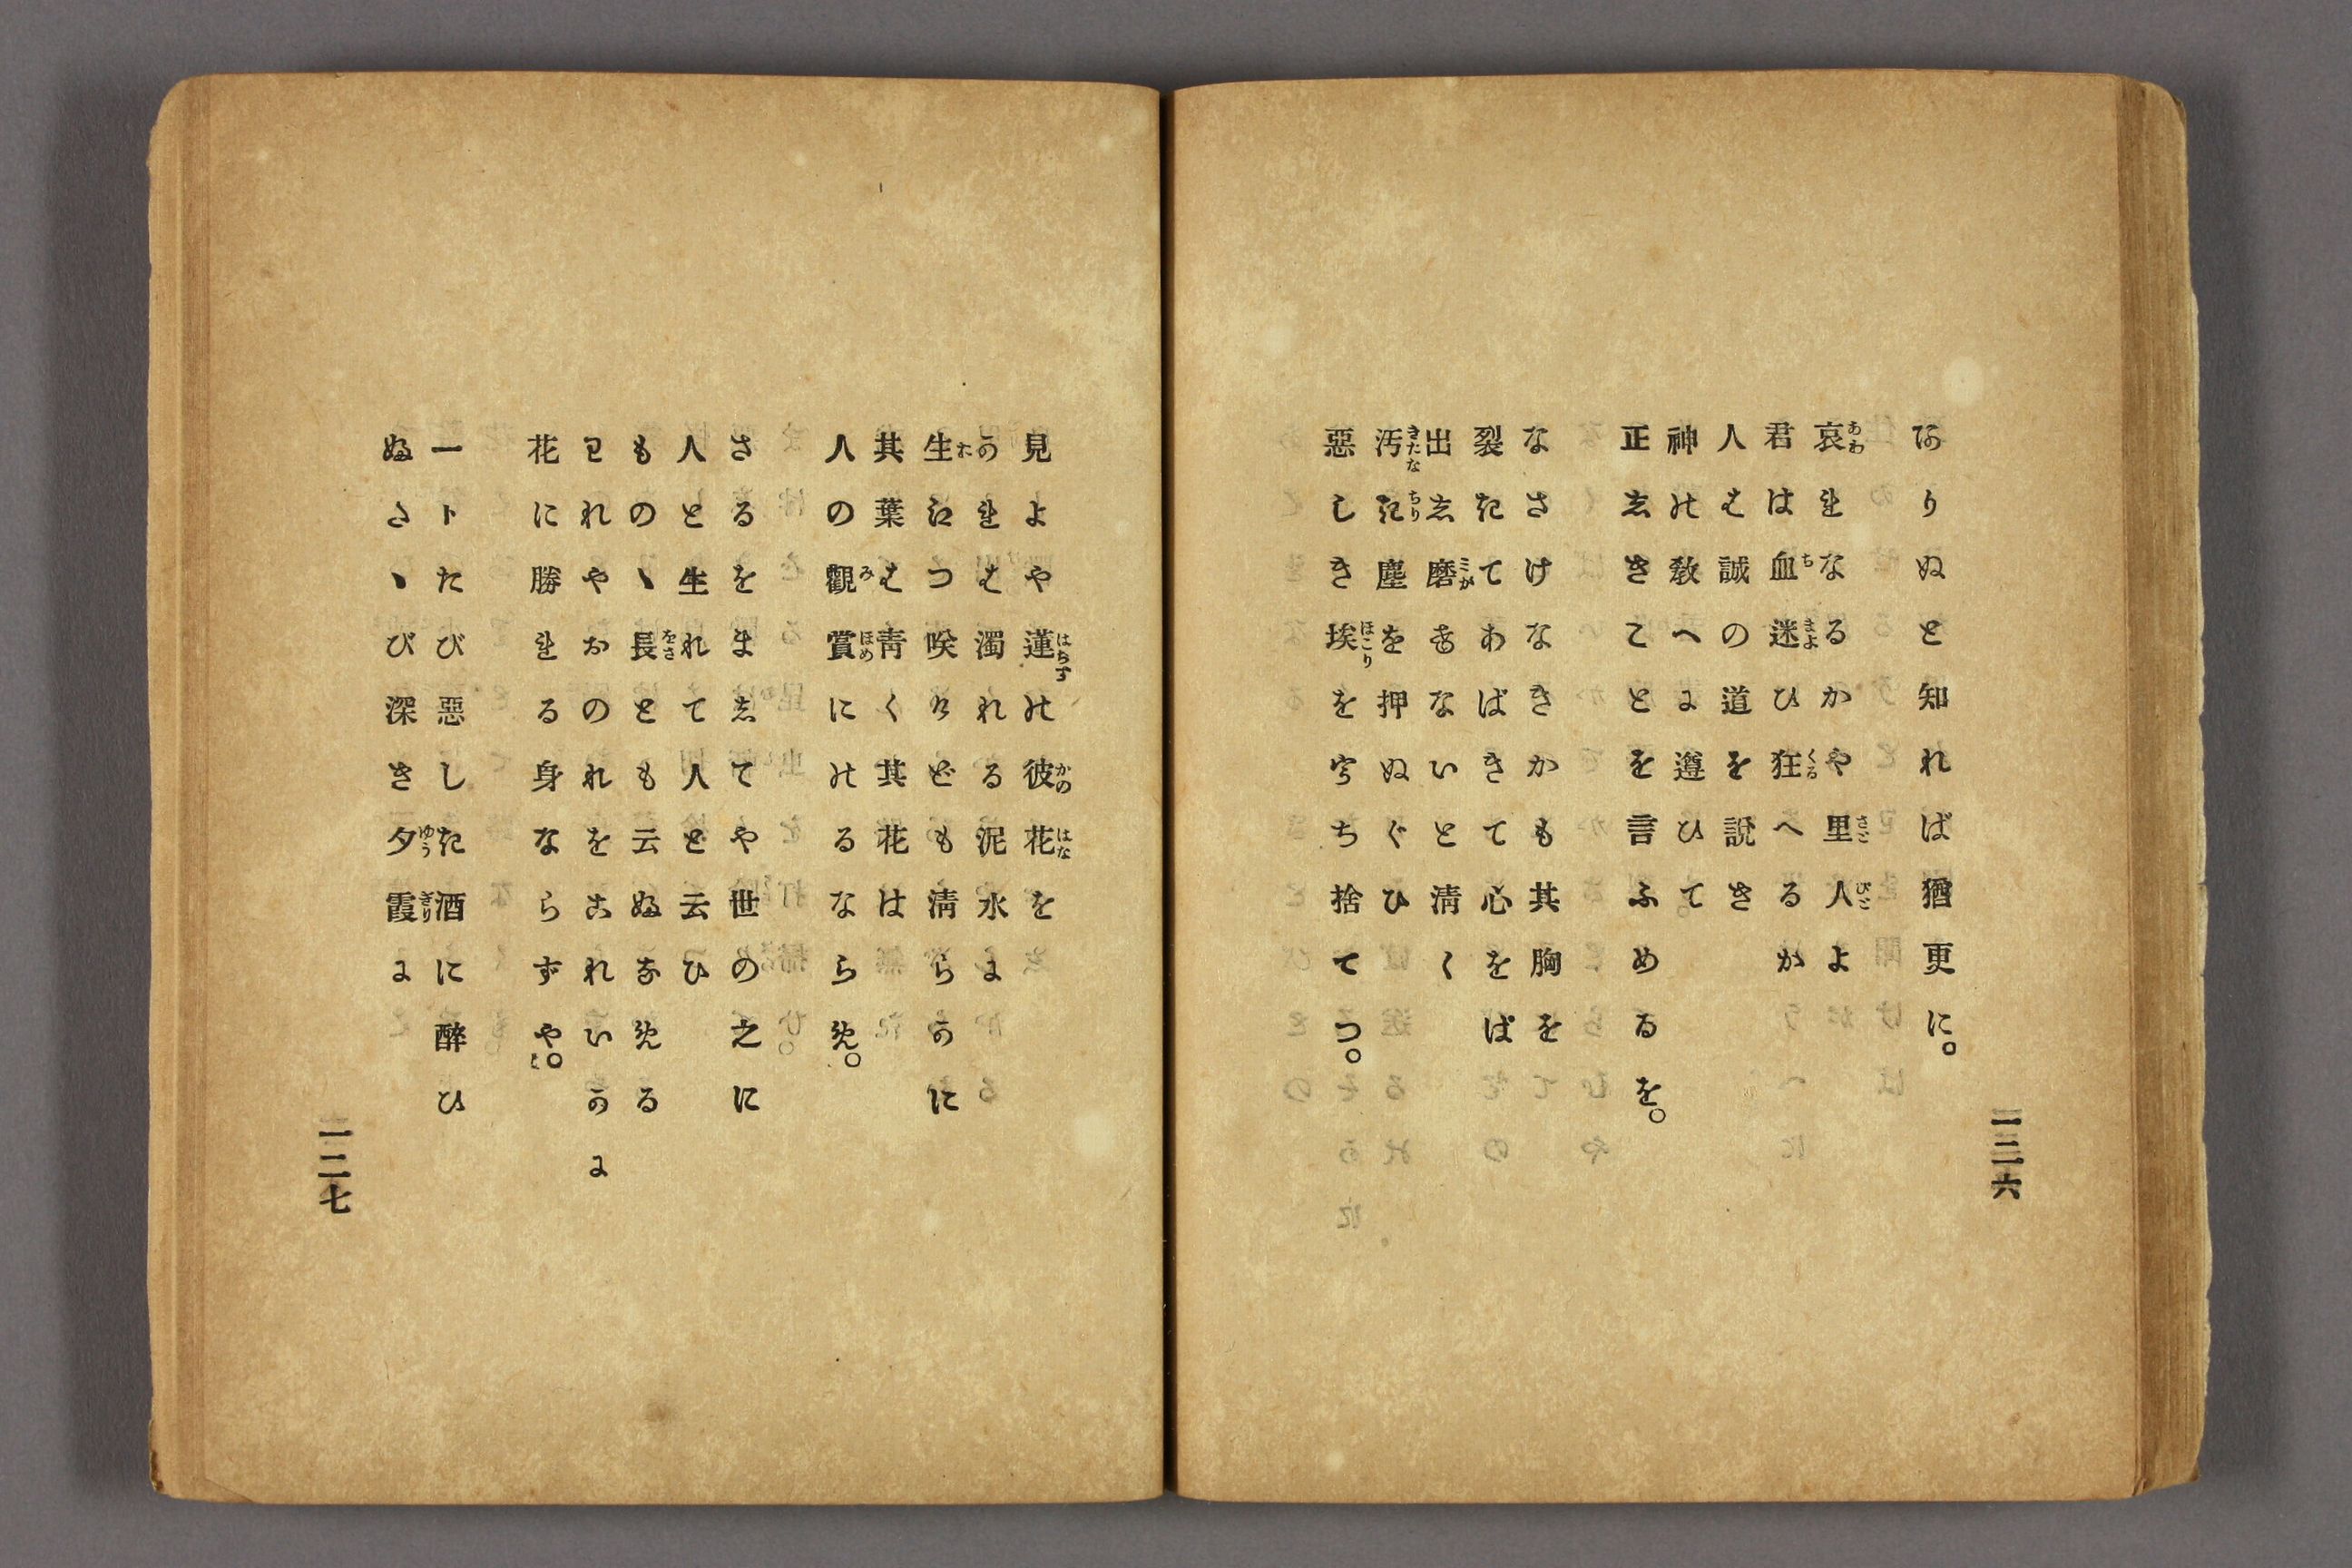 ありぬと知れば猶更に。
哀れなるかや里人よ
君は血迷ひ狂へるか
人は誠の道を説き
神の教へに遵ひて
正しきことを言ふめるを。
なさけなきかも其胸を
裂きてあばきて心をば
出し磨きないと清く
汚き塵を押ぬぐひ
惡しき埃をうち捨てつ。
一二六
見よや蓮の彼花を
かれは濁れる泥水に
生えつ咲けども清らかに
其葉は青く其花は
人の觀賞にのるならめ。
さるをましてや世の之に
人と生れて人と云ひ
ものゝ長とも云なめる
われやおのれをこれいかに
花に勝れる身ならずや。
一トたび惡しき酒に醉ひ
さゝび深き夕霞に
一二七